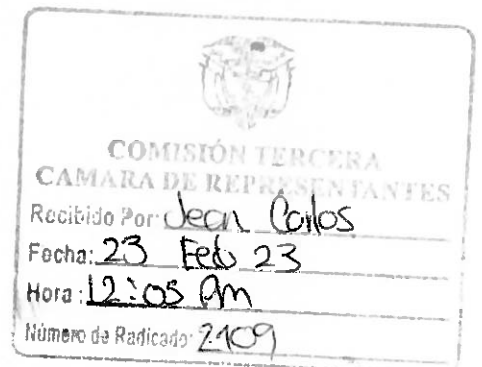 COMISIÓN TERCERA
CAMARA DE REPRESENTANTES
Recibido Por: Jean Carlos
Fecha: 23 Feb 23
Hora: 12:05 Pm
Número de Radicado: 2109